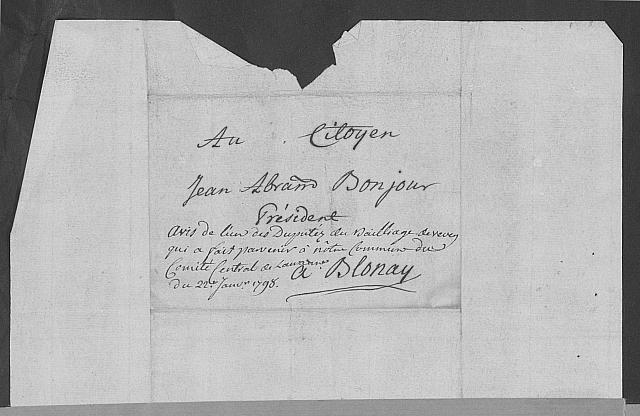 Au Citoyen
Jean Abram Bonjour
Président
avis de l'un des Duputez du Bailliage de vevey
qui a fait parvenir à nôtre Commune du
Comité Central de Lausanne
a Blonay
du 22e Janvr 1798.